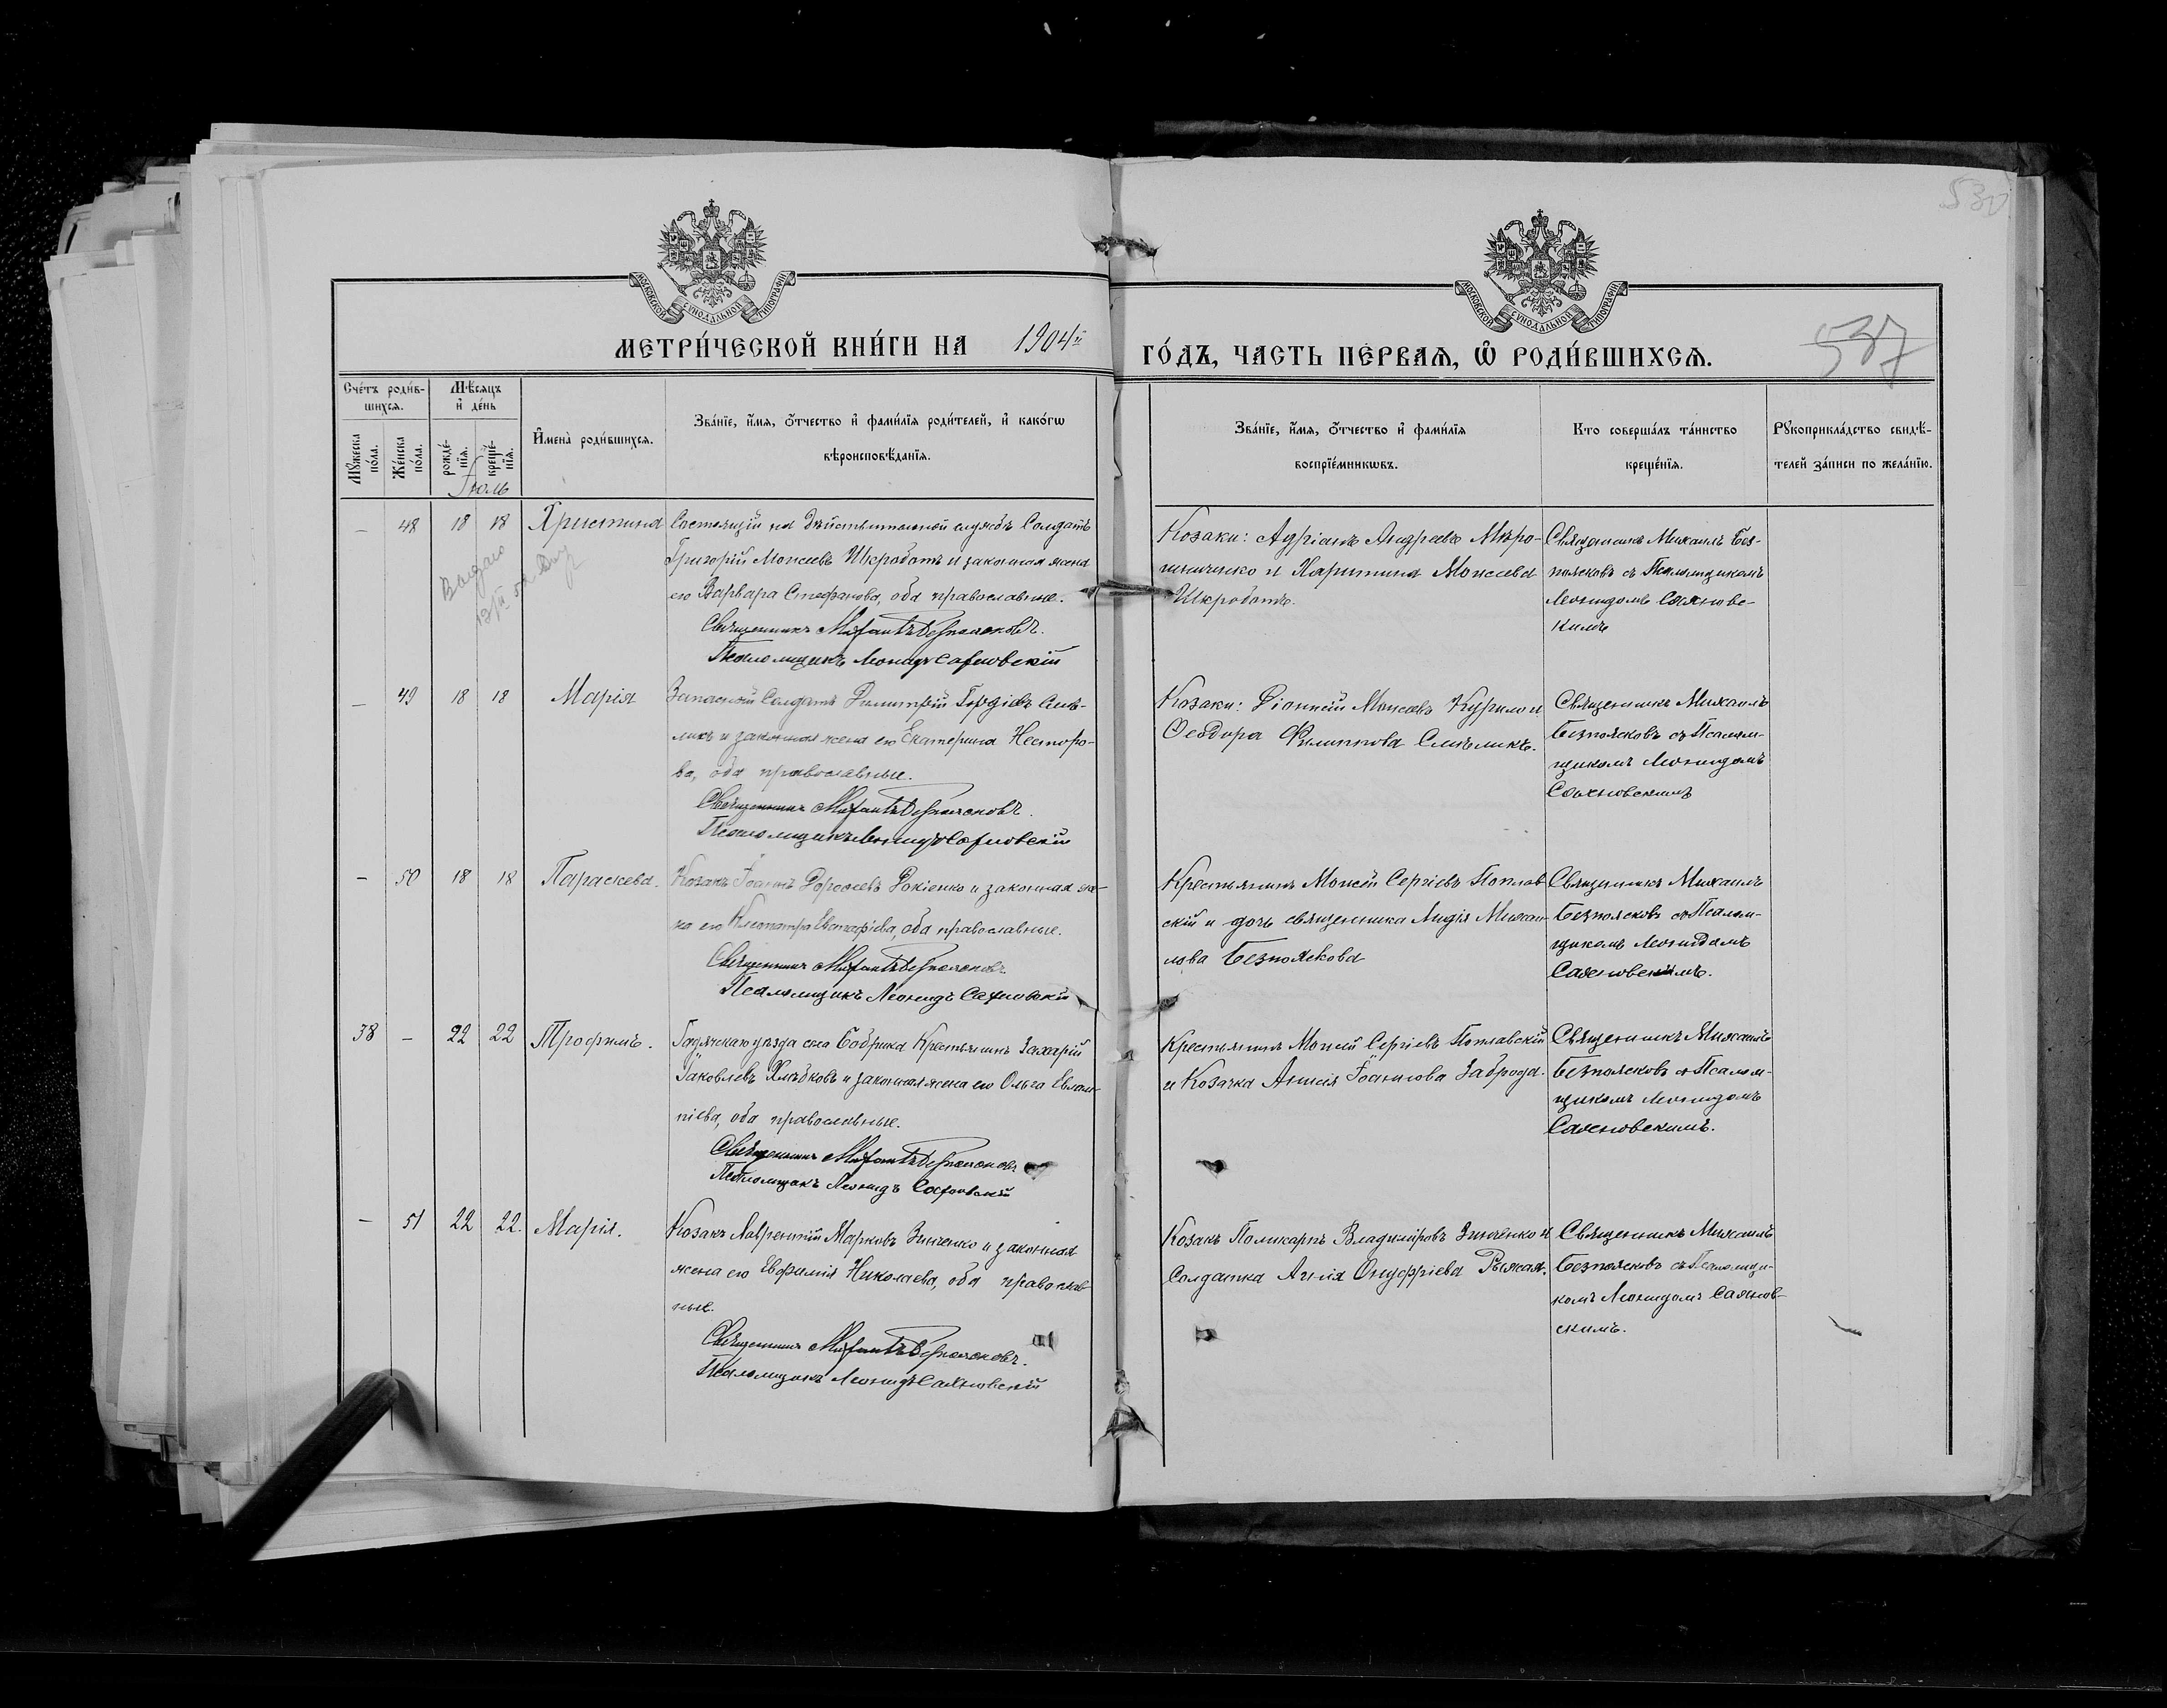 530
МОСКОВСКОЙ СѴНОДАЛЬНОЙ ТИПОГРАФІИ
МОСКОВСКОЙ СѴНОДАЛЬНОЙ ТИПОГРАФІИ
МЕТРИ́ЧЕСКОЙ КНИ́ГИ НА 1904й ГО́ДЪ, ЧАСТЬ ПЕ́РВАѦ, Ѡ РОДИ́ВШИХСѦ.
537
Сче́тъ роди́в-
шихсѧ.
Мѣ́сѧцъ
и҆ де́нь
Мꙋ́жеска
по́ла.
Же́нска
по́ла.
рожде́-
нїѧ.
креще́-
нїѧ.
И҆мена̀ роди́вшихсѧ.
Зва́нїе, и҆́мѧ, ѻ҆́тчество и҆ фами́лїѧ роди́телей, и҆ како́гѡ
вѣроисповѣ́данїѧ.
Зва́нїе, и҆́мѧ, ѻ҆́тчество и҆ фами́лїѧ
воспрїе́мникѡвъ.
Кто соверша́лъ та́инство
креще́нїѧ.
Рꙋкоприкла́дство свидѣ́-
телей за́писи по жела́нїю.
Іюль
— 48 18 18 Христина
Состоящій на дѣйствительной службѣ Солдатъ
Григорій Моисеевъ Шкроботъ и законная жена
его Варвара Стефанова, оба православные.
Священникъ Михаилъ Безпоясковъ.
Псаломщикъ Леонидъ Саяновскій
Козаки: Адріанъ Андреевъ Мѣро-
шниченко и Харитина Моисеева
Шкроботъ.
Священникъ Михаилъ Без-
поясковъ съ Псаломщикомъ
Леонидомъ Саяновс-
кимъ
Выдано
— 49 18 18 Марія
Запасной Солдатъ Димитрій Гордіевъ Смѣ-
ликъ и законная жена его Екатерина Несторо-
ва, оба православные.
Священникъ Михаилъ Безпоясковъ.
Псаломщикъ Леонидъ Саяновскій
Козаки: Моисеевъ Курило и
Ѳеодора Филиппова Смѣликъ.
Священникъ Михаилъ
Безпоясковъ съ Псалом-
щикомъ Леонидомъ
Саяновскимъ
— 50 18 18 Параскева.
Козакъ Іоаннъ Дороѳеевъ Рокіенко и законная же-
на его Клеопатра Евстафіева, оба православные.
Священникъ Михаилъ Безпоясковъ.
Псаломщикъ Леонидъ Саяновскій
Крестьянинъ Моисей Сергіевъ Поплав-
скій и дочь священника Лидія Михаи-
лова Безпояскова
Священникъ Михаилъ
Безпоясковъ съ Псалом-
щикомъ Леонидомъ
Саяновскимъ.
38 — 22 22 Трофимъ.
Гадячскаго уѣзда села Бобрика Крестьянинъ Захарій
Іаковлевъ Хлѣбковъ и законная жена его Ольга Евлам-
піева, оба православные.
Священникъ Михаилъ Безпоясковъ
Псаломщикъ Леонидъ Саяновскій
Крестьянинъ Моисей Сергіевъ Поплавскій
и Козачка Анисія Іоаннова Заброда.
Священникъ Михаилъ
Безпоясковъ съ Псалом-
щикомъ Леонидомъ
Саяновскимъ.
— 51 22 22. Марія.
Козакъ Лаврентій Марковъ Зинченко и законная
жена его Евфимія Николаева, оба православ-
ные.
Священникъ Михаилъ Безпоясковъ.
Псаломщикъ Леонидъ Саяновскій
Козакъ Поликарпъ Владиміровъ Зинченко и
Солдатка Анна Онуфріева Рыжая.
Священникъ Михаилъ
Безпоясковъ съ Псаломщи-
комъ Леонидомъ Саянов-
скимъ.